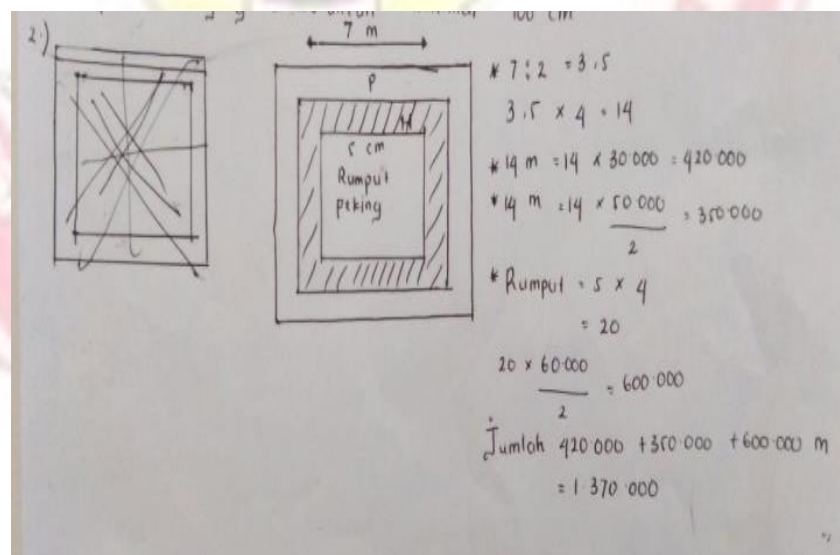 100 cm
2.)
7 m
P
H
5 cm
Rumput
peking
* 7 : 2 = 3.5
3.5 × 4 = 14
* 14 m = 14 × 30.000 = 420.000
* 14 m = 14 × 50.000 / 2 = 350.000
* Rumput = 5 × 4
= 20
20 × 60.000 / 2 = 600.000
Jumlah 420.000 + 350.000 + 600.000 m
= 1.370.000